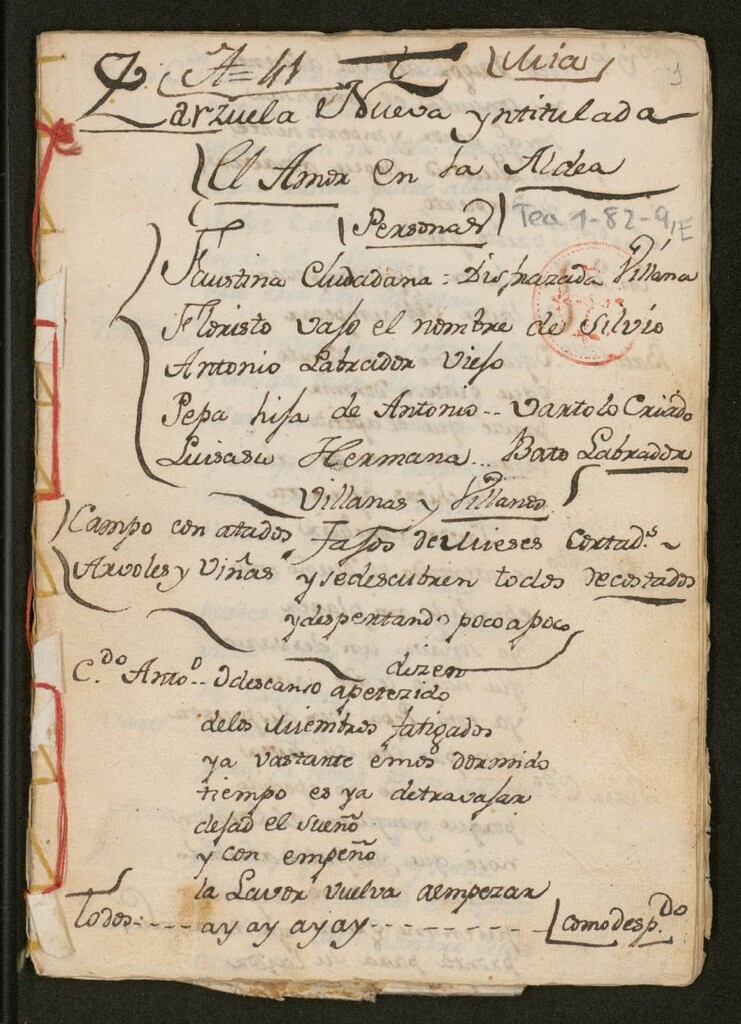 A=41 t Mia
1
Zarzuela Nueva yntitulada
El Amor en la Aldea
Personas Tea 1-82-9, E
Faustina Ciudadana = Disfrazada Villana
Floristo vajo el nombre de Silvio
Antonio Labrador Viejo
Pepa hija de Antonio -- Vartolo Criado
Luisa su Hermana... Bato Labrador
Villanas y Villanos
Campo con atados Fajos de Mieses Cortad.s
Arvoles y Viñas y se descubren todos recostados
y despertando poco a poco
dizen
C.do Anto.o -- O descanso apetezido
delos Miembros fatigados
ya vastante emos dormido
tiempo es ya detravajar
dejad el sueño
y con empeño
la Lavor vuelva aempezar
Todos: --- ay ay ay ay --------- como desp.do